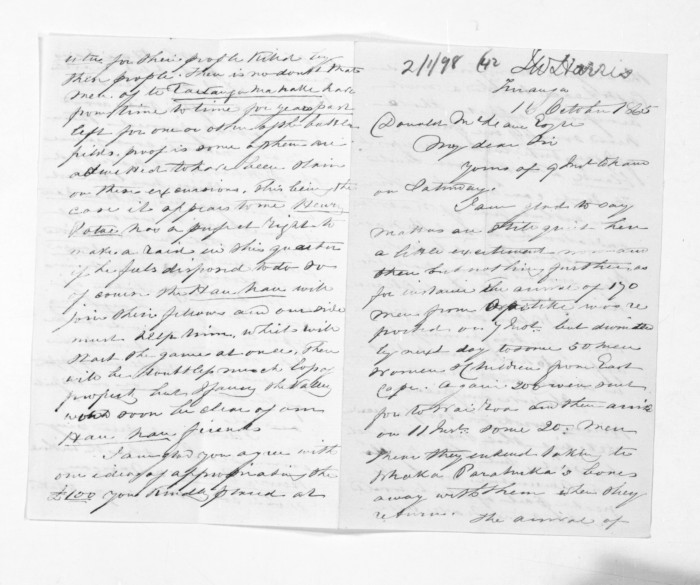 2/1/98
J W Harris
Turanga
16 October 1865
Donald McLean Esqre
My dear Sir
Yours of 9 Inst to hand
on Saturday.
I am glad to say
matters are still quiet here
a little excitement now and
then but nothing further as
for instance the arrival of 170
men from was re
ported on 7 Inst. but
by next day to some 50 men
women & children from East
Cape. Again 200 were sent
for to Wairoa and there arrive
on 11 Inst. some 20 men
these they intend taking to
bones
away with them when they
return. The arrival of
utu for their people killed by
their people. There is no doubt that
men of te have
from time to time for years past
left for one or other of the battle
fields, proof is some of them are
admitted to have been slain
on these excursions. This being the
case it appears to me Henry
Potae has a perfect right to
make a raid in this quarter
if he feels disposed to do so
of course the Hau Hau will
join their fellows and our side
must help him, which will
start the game at once. There
will be doubtless much loss of
property but I fancy the Valley
would soon be clear of our
Hau Hau friends
I am glad you agree with
our idea of appropriating the
£100 you kindly placed at